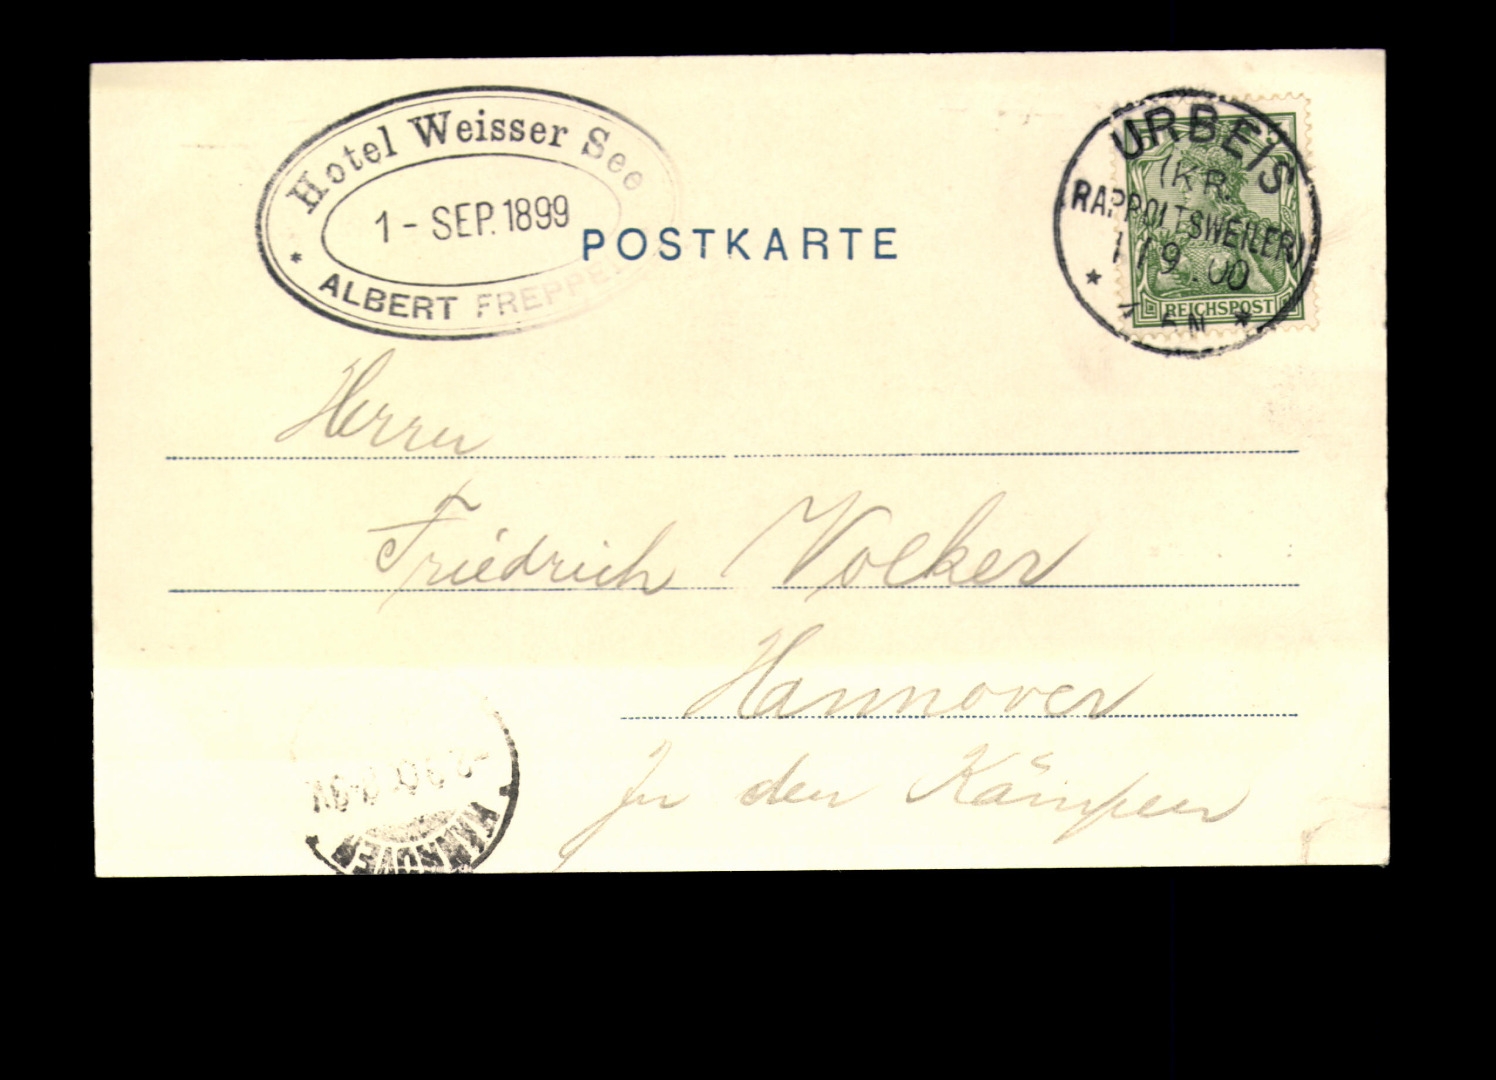 Hotel Weisser See
1 - SEP. 1899
* ALBERT FREPPEL
POSTKARTE
URBEIS
(KR.
RAPPOLTSWEILER)
1 / 9. 00
REICHSPOST
Herrn
Friedrich Volker
Hannover
In den Kämpen